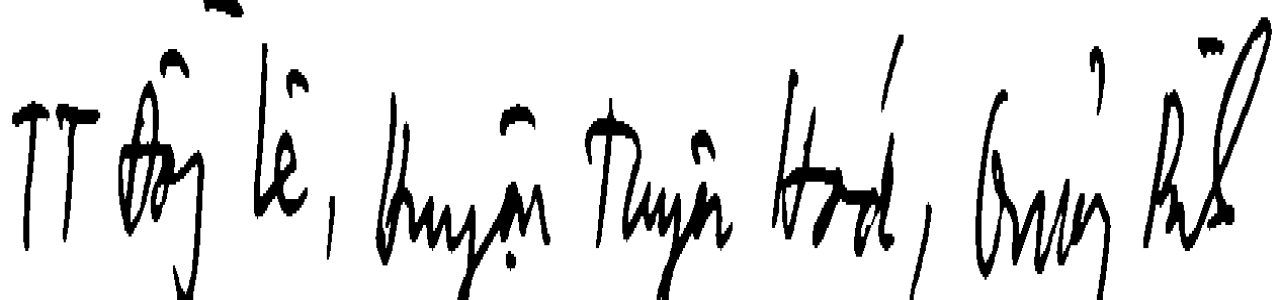 TT Đồng Lê, Huyện Tuyên Hoá, Quảng Bình